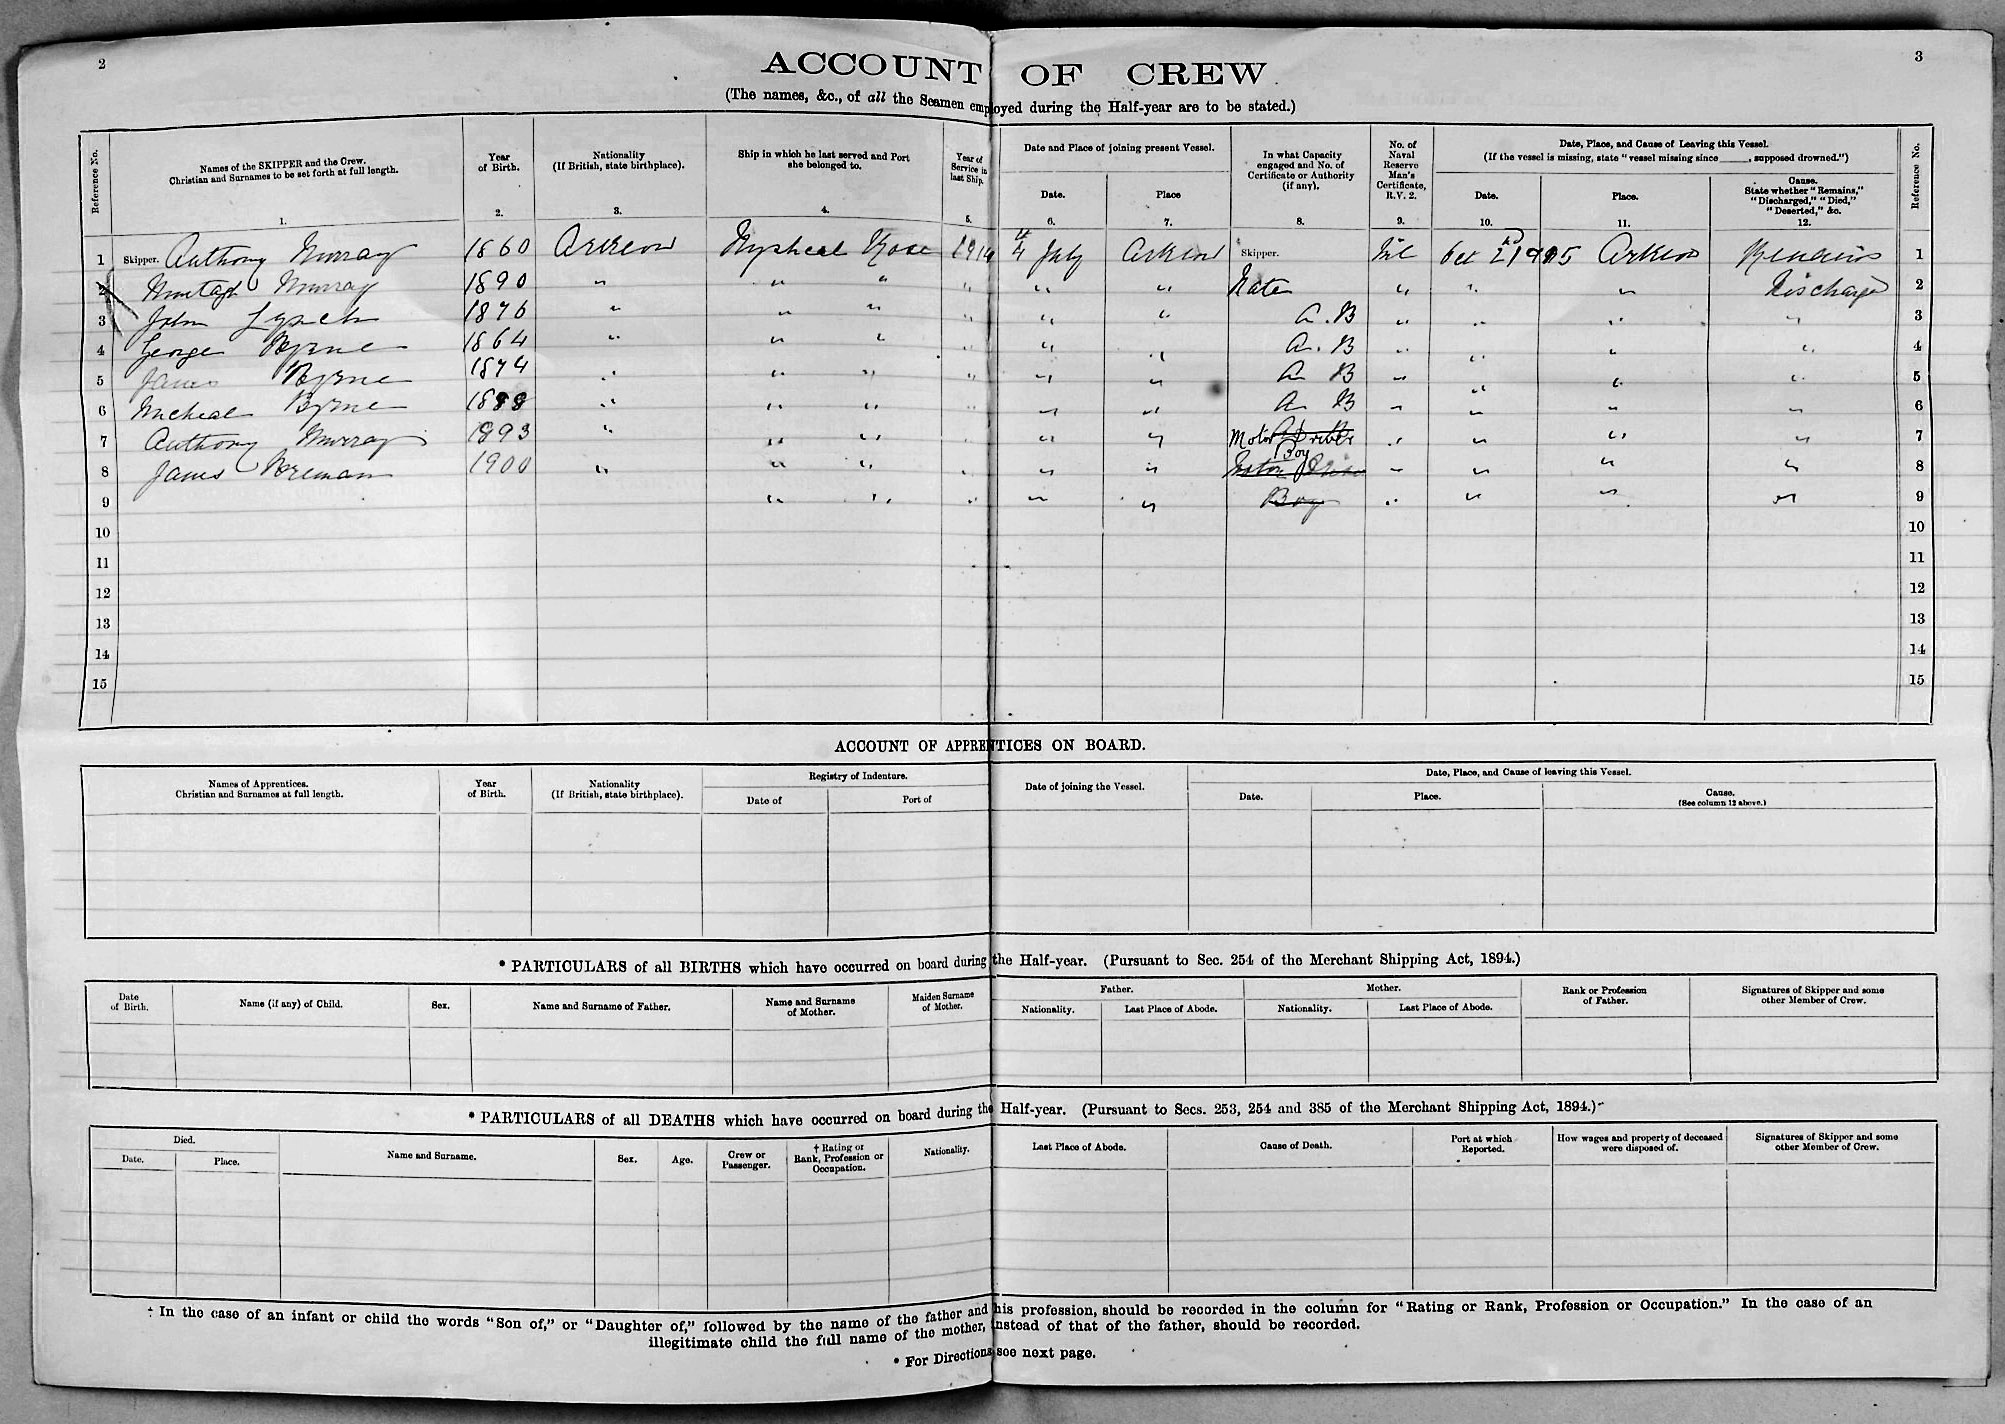 2
3
ACCOUNT OF CREW
(The names, &c., of all the Seamen employed during the Half-year are to be stated.)
Reference No.
Names of the SKIPPER and the Crew.
Christian and Surnames to be set forth at full length.
1.
Year
of Birth.
2.
Nationality
(If British, state birthplace).
3.
Ship in which he last served and Port
she belonged to.
4.
Year of
Service in
last Ship.
5.
Date and Place of joining present Vessel.
Date.
6.
Place
7.
In what Capacity
engaged and No. of
Certificate or Authority
(if any).
8.
No. of
Naval
Reserve
Man's
Certificate,
R.V. 2.
9.
Date, Place, and Cause of Leaving this Vessel.
(If the vessel is missing, state "vessel missing since ____, supposed drowned.")
Date.
10.
Place.
11.
Cause.
State whether "Remains,"
"Discharged," "Died,"
"Deserted," &c.
12.
Reference No.
1 Skipper. Anthony Murray 1860 Arklow Rose 1914 4 July Arklow Skipper. Nil Oct 2nd 1915 Arklow Remains 1
2 Murtagh Murray 1890 " " " " " " Mate " " " Discharge 2
3 John Lynch 1876 " " " " " " A.B " " " " 3
4 George Byrne 1864 " " " " " " A.B " " " " 4
5 James Byrne 1874 " " " " " " A B " " " " 5
6 Micheal Byrne 1888 " " " " " A B " " " " 6
7 Anthony Murray 1893 " " " " " Motor Driver " " " " 7
8 James Brennan 1900 " " " " " " Boy Motor Driver " " " " 8
9 " " " " " Boy " " " " 9
10 10
11 11
12 12
13 13
14 14
15 15
ACCOUNT OF APPRENTICES ON BOARD.
Names of Apprentices.
Christian and Surnames at full length.
Year
of Birth.
Nationality
(If British, state birthplace).
Registry of Indenture.
Date of
Port of
Date of joining the Vessel.
Date, Place, and Cause of leaving this Vessel.
Date.
Place.
Cause.
(See column 12 above.)
* PARTICULARS of all BIRTHS which have occurred on board during the Half-year. (Pursuant to Sec. 254 of the Merchant Shipping Act, 1894.)
Date
of Birth.
Name (if any) of Child.
Sex.
Name and Surname of Father.
Name and Surname
of Mother.
Maiden Surname
of Mother.
Father.
Nationality.
Last Place of Abode.
Mother.
Nationality.
Last Place of Abode.
Rank or Profession
of Father.
Signatures of Skipper and some
other Member of Crew.
* PARTICULARS of all DEATHS which have occurred on board during the Half-year. (Pursuant to Secs. 253, 254 and 385 of the Merchant Shipping Act, 1894.)
Died.
Date.
Place.
Name and Surname.
Sex.
Age.
Crew or
Passenger.
† Rating or
Rank, Profession or
Occupation.
Nationality.
Last Place of Abode.
Cause of Death.
Port at which
Reported.
How wages and property of deceased
were disposed of.
Signatures of Skipper and some
other Member of Crew.
† In the case of an infant or child the words "Son of," or "Daughter of," followed by the name of the father and his profession, should be recorded in the column for "Rating or Rank, Profession or Occupation." In the case of an
illegitimate child the full name of the mother, instead of that of the father, should be recorded.
* For Directions see next page.